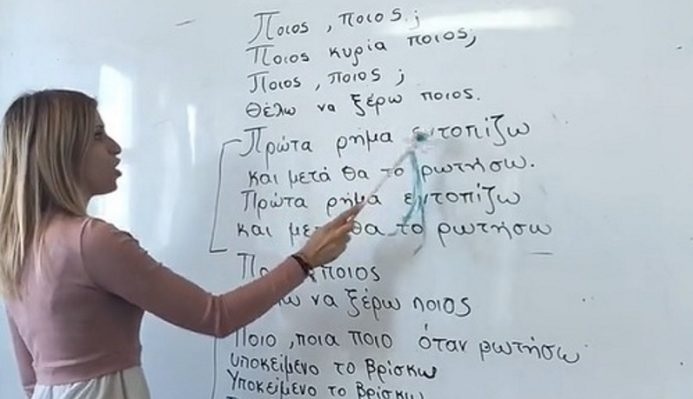 Ποιος, ποιος;
Ποιος κυρία ποιος;
Ποιος, ποιος;
Θέλω να ξέρω ποιος.
Πρώτα ρήμα εντοπίζω
και μετά θα το ρωτήσω.
Πρώτα ρήμα εντοπίζω
και θα το ρωτήσω
ποιος
να ξέρω ποιος
Ποιο, ποια ποιο όταν ρωτήσω
υποκείμενο το βρίσκω
Υποκείμενο το βρίσκω